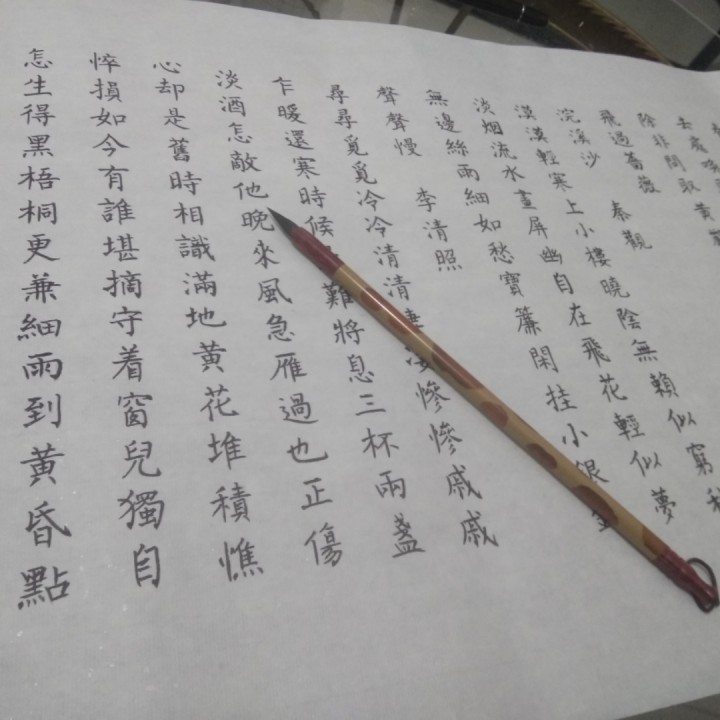 去處喚
除非問取黃鸝
飛過薔薇
浣溪沙 秦觀
漠漠輕寒上小樓曉陰無賴似窮秋
淡烟流水畫屏幽自在飛花輕似夢
無邊絲雨細如愁寶簾閑挂小銀
聲聲慢 李清照
尋尋覓覓冷冷清清凄凄慘慘戚戚
乍暖還寒時候難將息三杯兩盞
淡酒怎敵他晚來風急雁過也正傷
心却是舊時相識滿地黃花堆積憔
悴損如今有誰堪摘守着窗兒獨自
怎生得黑梧桐更兼細雨到黃昏點